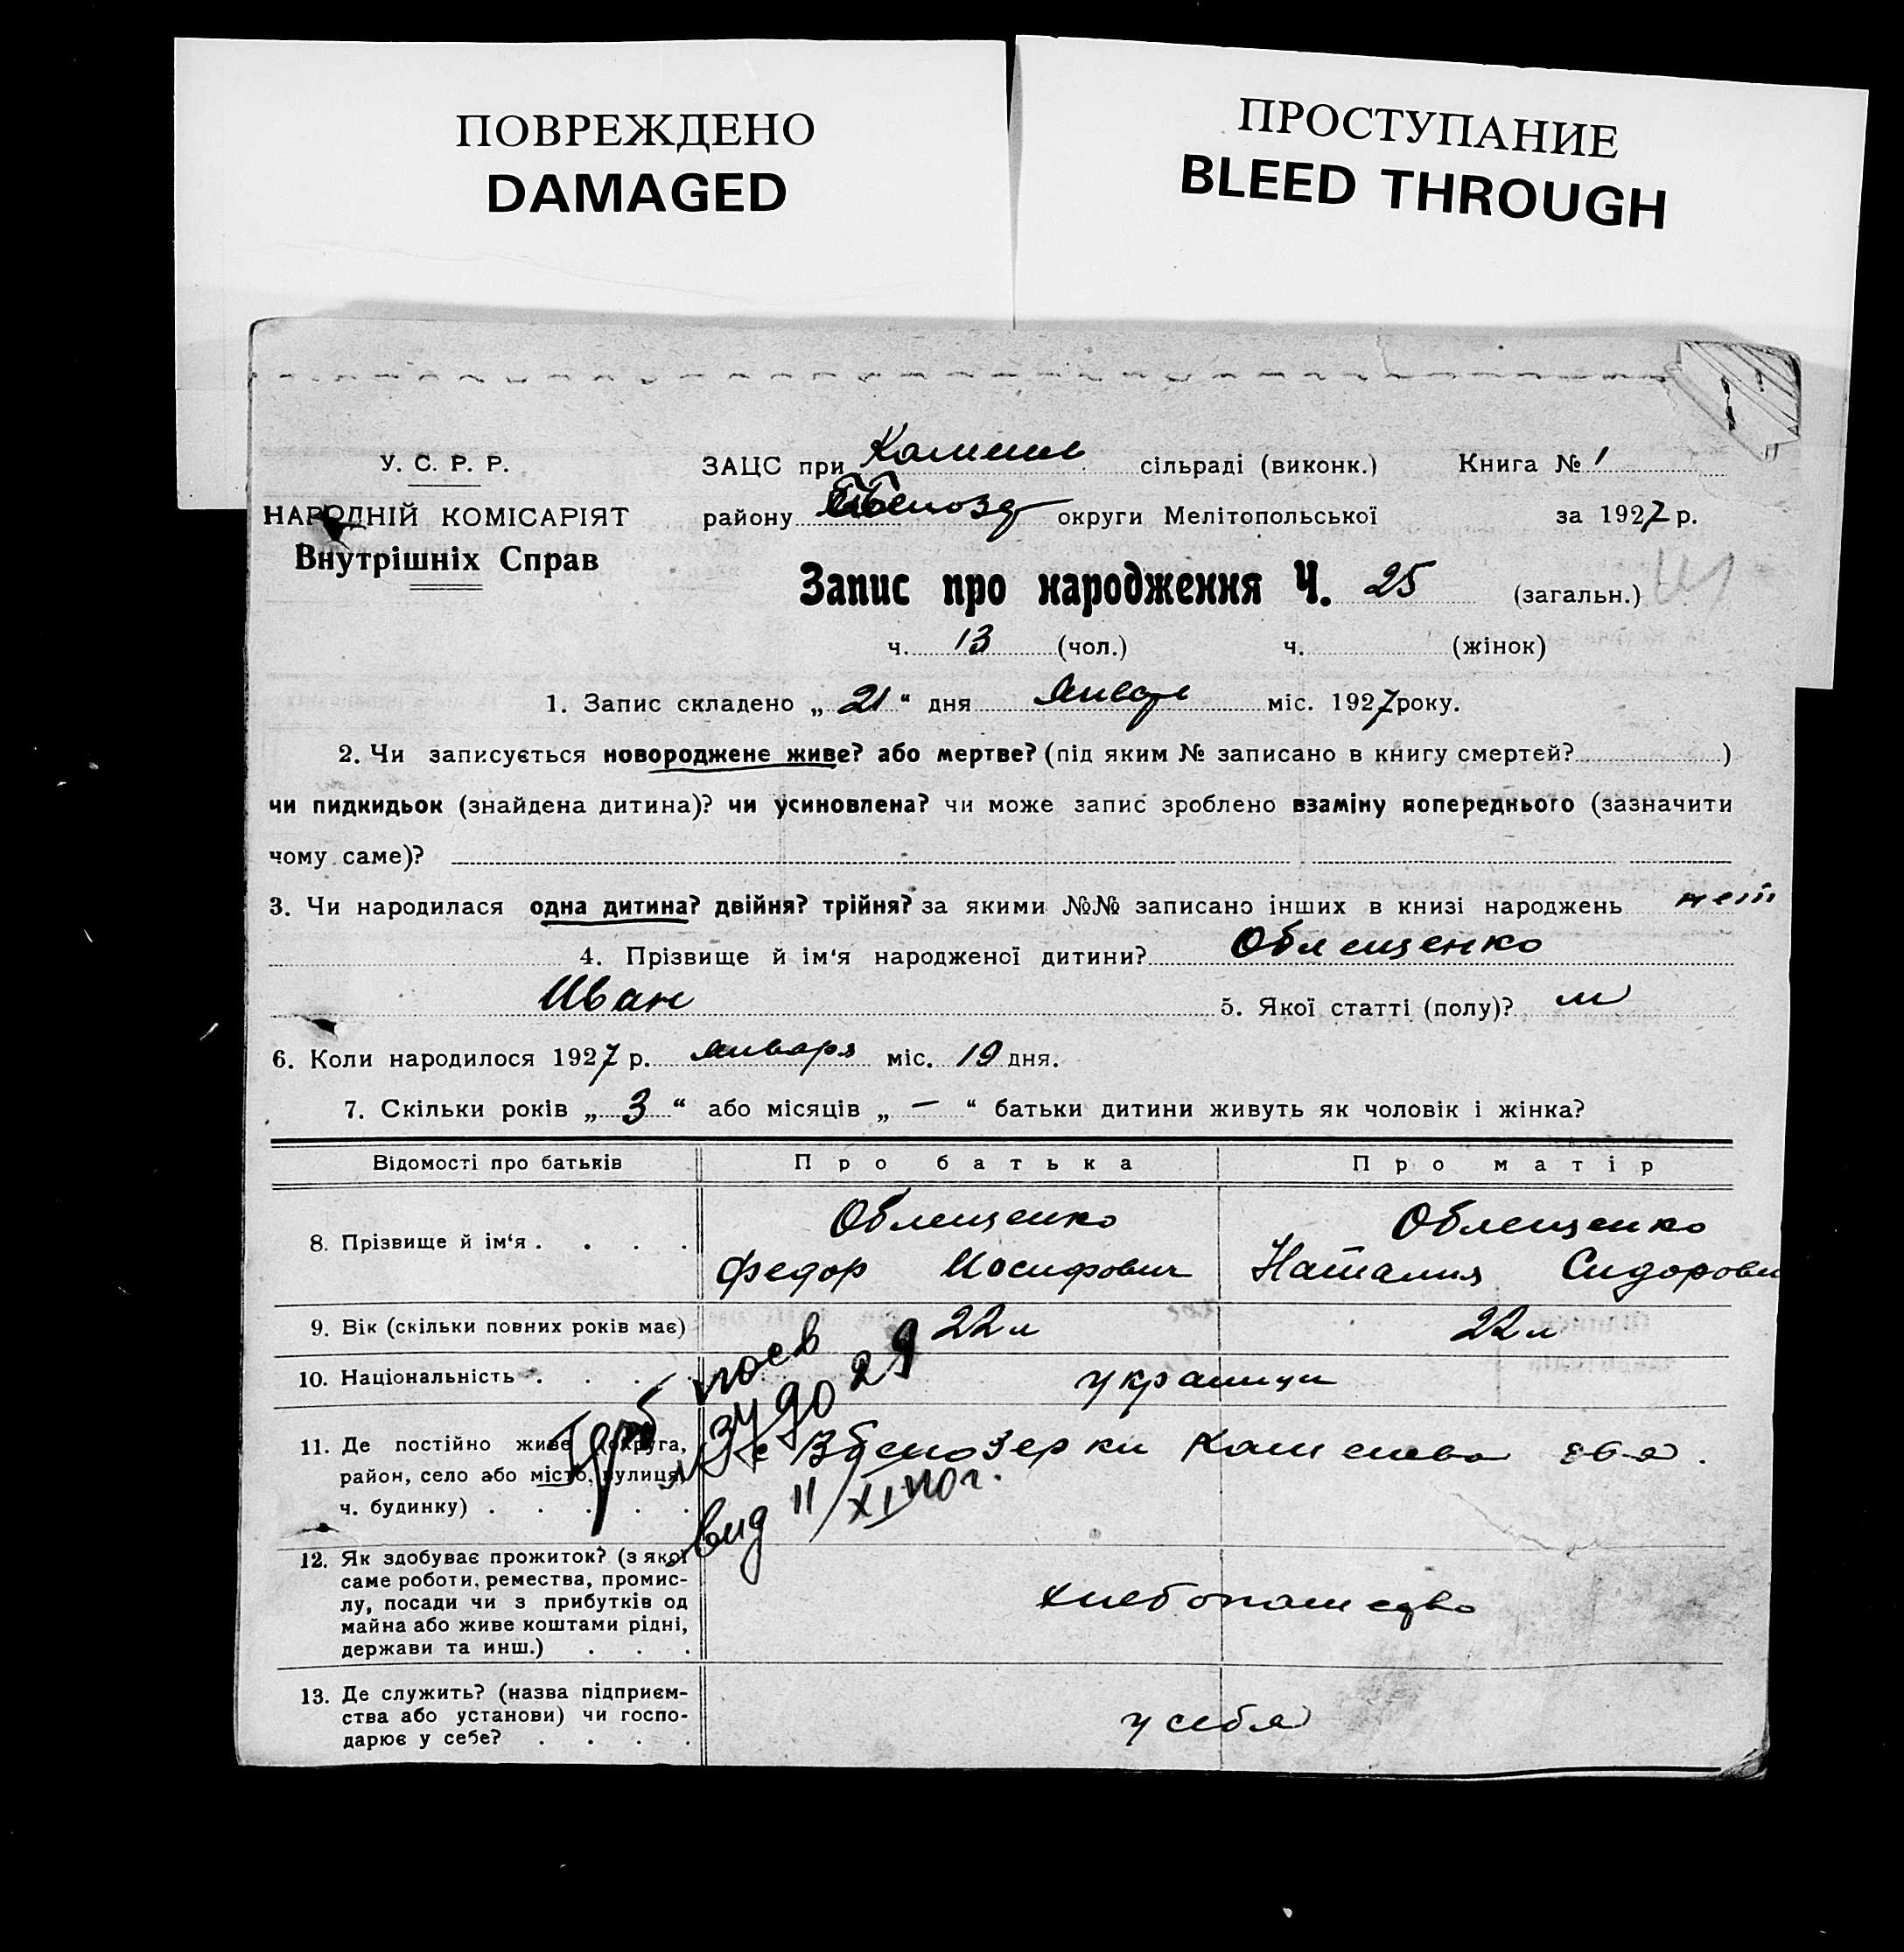 ПОВРЕЖДЕНО
DAMAGED
ПРОСТУПАНИЕ
BLEED THROUGH
У. С. Р. Р.
НАРОДНІЙ КОМІСАРІЯТ
Внутрішніх Справ
ЗАЦС при сільраді (виконк.) Книга № 1
району округи Мелітопольської за 1927 р.
Запис про народження Ч. 25 (загальн.)
ч. 13 (чол.) ч. (жінок)
1. Запис складено „ 21 “ дня Январь міс. 1927 року.
2. Чи записується новороджене живе? або мертве? (під яким № записано в книгу смертей? )
чи пидкидьок (знайдена дитина)? чи усиновлена? чи може запис зроблено взаміну попереднього (зазначити
чому саме)?
3. Чи народилася одна дитина? двійня? трійня? за якими №№ записано інших в книзі народжень нет
4. Прізвище й ім‘я народженої дитини? Облещенко
Иван 5. Якої статті (полу)? м
6. Коли народилося 1927 р. января міс. 19 дня.
7. Скільки років „ 3 “ або місяців „ — “ батьки дитини живуть як чоловік і жінка?
Відомості про батьків Про батька Про матір
8. Прізвище й ім‘я . . . . Облещенко Облещенко
Федор Иосифович Наталия Сидоровн
9. Вік (скільки повних років має) 22 л 22 л
10. Національність . . . . украинци
11. Де постійно живе (округа,
район, село або місто, вулиця,
ч. будинку) . . . . .
вид 11/XI 40 г.
12. Як здобуває прожиток? (з якої
саме роботи, ремества, промис-
лу, посади чи з прибутків од
майна або живе коштами рідні,
держави та инш.) . . .
хлебопашество
13. Де служить? (назва підприєм-
ства або установи) чи госпо-
дарює у себе? . . . .
у себя